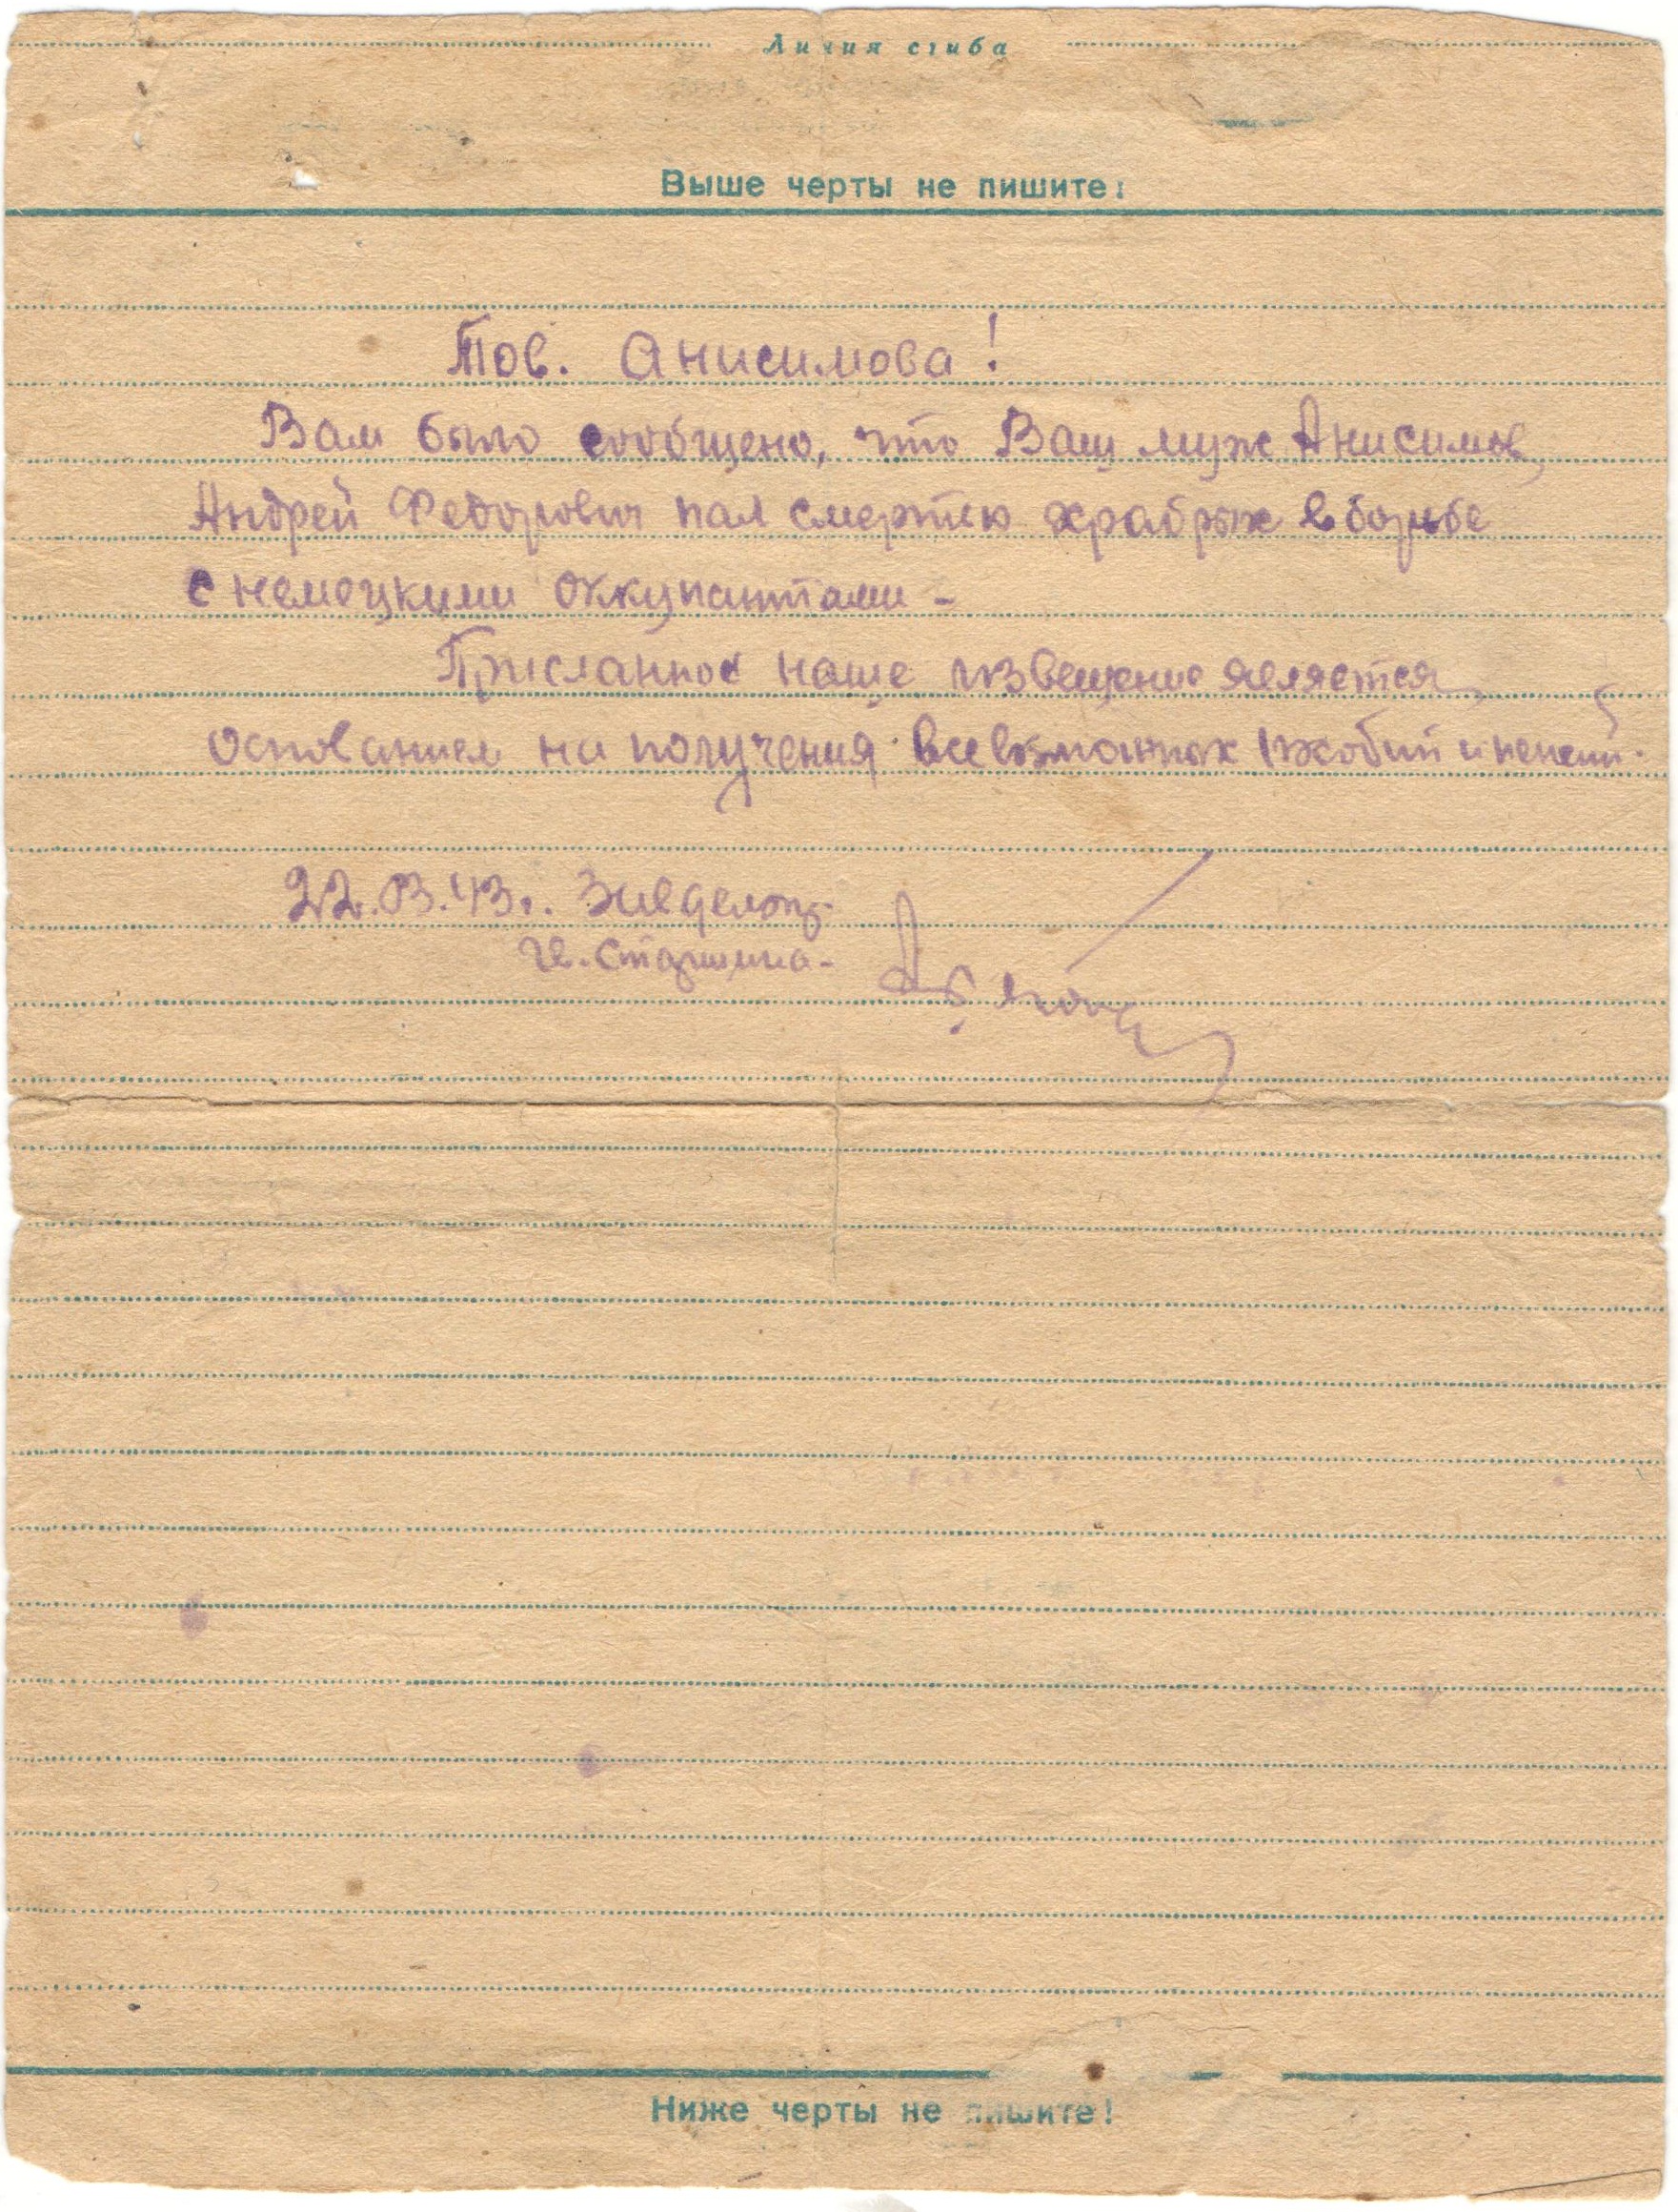 Линия сгиба
Выше черты не пишите!
Тов. Анисимова!
Вам было сообщено, что Ваш муж Анисимов
Андрей Федорович пал смертью храбрых в борьбе
с немецкими оккупантами -
Присланное наше извещение является
основанием на получения всевозможных пособий и пенсий.
22.03.43г. Зав делопр.
ст. старшина -
Ниже черты не пишите!